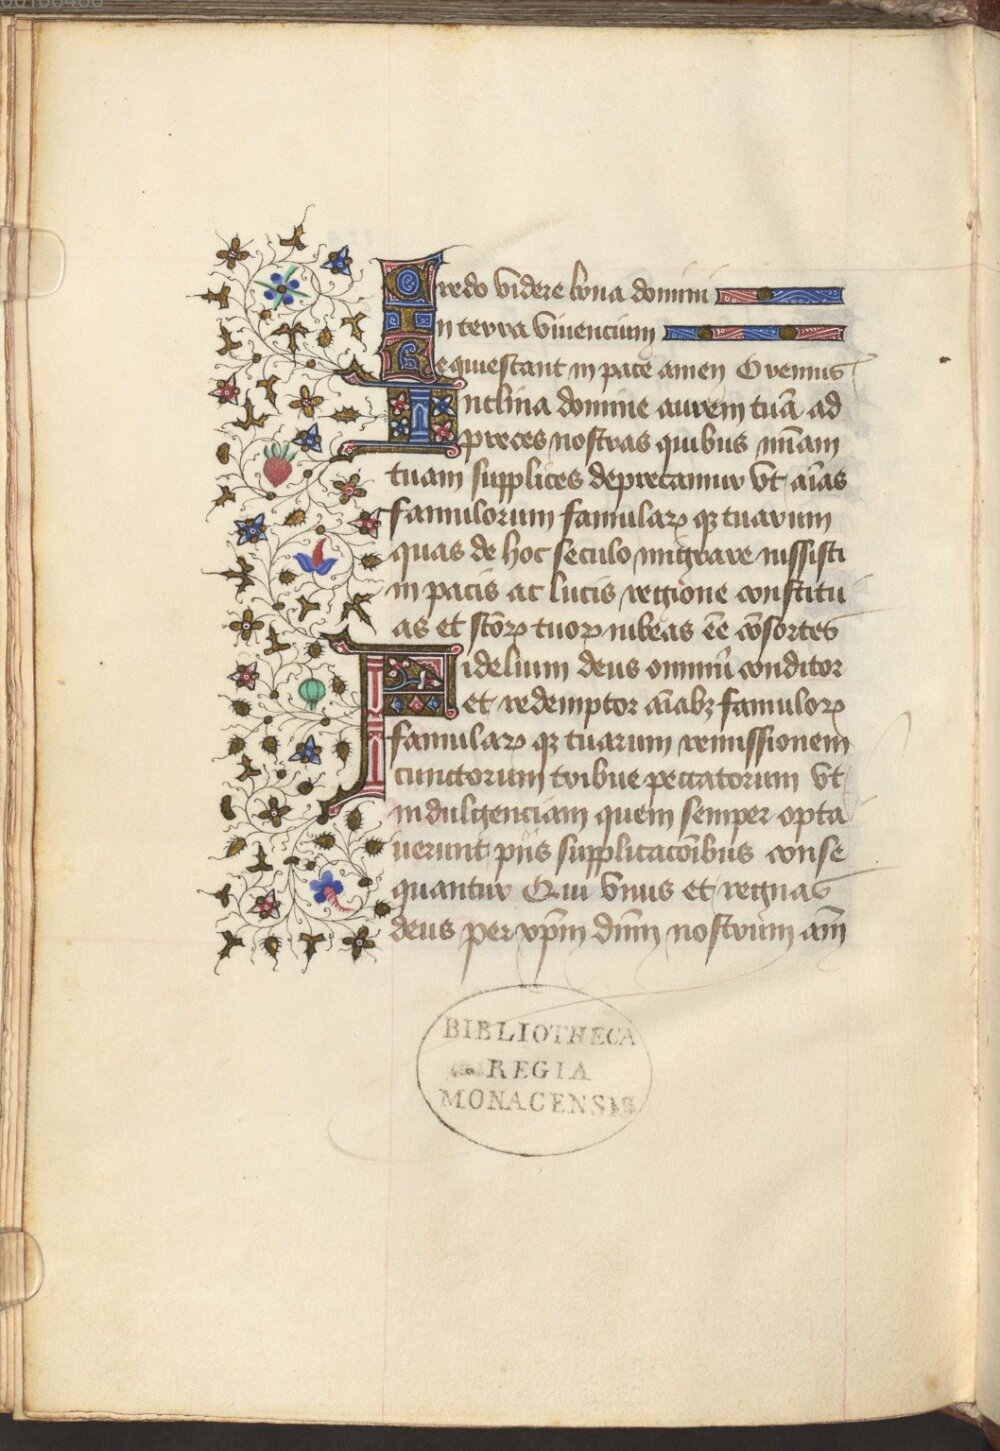 Credo videre bona domini
In terra viuencium
Requiescant in pace amen Oremus
Inclina domine aurem tuā ad
preces nostras quibus miām
tuam supplices deprecamur vt aīas
famulorum famularꝝ qꝫ tuarum
quas de hoc seculo migrare iussisti
in pacis ac lucis regione constitu
as et sc̄orꝝ tuorꝝ iubeas eē cōsortes
Fidelium deus omniū conditor
et redemptor aīabꝫ famulorꝝ
famularꝝ qꝫ tuarum remissionem
cunctorum tribue peccatorum vt
indulgenciam quem semper opta
uerunt piis supplicacōibus conse
quantur Qui viuis et regnas
deus per xp̄m dn̄m nostrum am̄
BIBLIOTHECA
REGIA
MONACENSIS